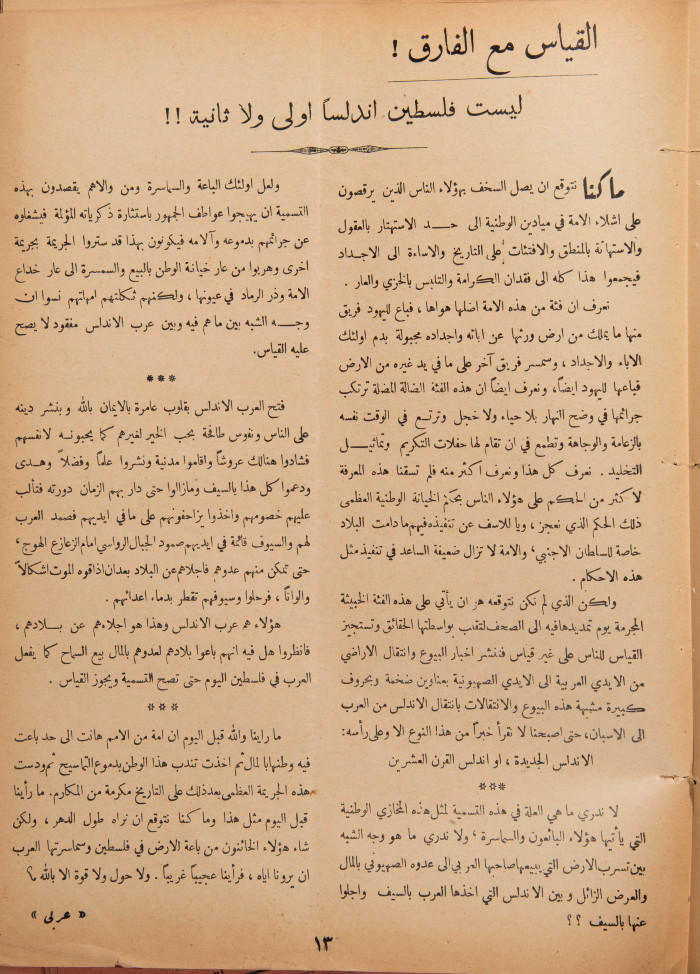 القياس مع الفارق !
ليست فلسطين اندلساً اولى ولا ثانية !!
ما كنا نتوقع ان يصل السخف بهؤلاء الناس الذين يرقصون
على اشلاء الامة في ميادين الوطنية الى حد الاستهتار بالعقول
والاستهانة بالمنطق والافتئات على التاريخ والاساءة الى الاجداد
فيجمعوا هذا كله الى فقدان الكرامة والتلبس بالخزي والعار .
نعرف ان فئة من هذه الامة اضلها هواها ، فباع لليهود فريق
منها ما يملك من ارض ورثها عن ابائه واجداده مجبولة بدم اولئك
الاباء والاجداد ، وسمسر فريق آخر على ما في يد غيره من الارض
فباعها لليهود ايضاً، ونعرف ايضاً ان هذه الفئة الضالة المضلة ترتكب
جرائمها في وضح النهار بلا حياء ولا خجل وترتع في الوقت نفسه
بالزعامة والوجاهة وتطمع في ان تقام لها حفلات التكريم وتماثيل
التخليد . نعرف كل هذا ونعرف اكثر منه فلم تسقنا هذه المعرفة
لاكثر من الحكم على هؤلاء الناس بحكم الخيانة الوطنية العظمى
ذلك الحكم الذي نعجز ، ويا للاسف عن تنفيذه فيهم ما دامت البلاد
خاصة للسلطان الاجنبي، والامة لا تزال ضعيفة الساعد في تنفيذ مثل
هذه الاحكام .
ولكن الذي لم نكن نتوقعه هو ان يأتي على هذه الفئة الخبيثة
المجرمة يوم تمد يدها فيه الى الصحف لتقلب بواسطتها الحقائق وتستجيز
القياس للناس على غير قياس فننشر اخبار البيوع وانتقال الاراضي
من الايدي العربية الى الايدي الصهيونية بعناوين ضخمة وبحروف
كبيرة مشبهة هذه البيوع والانتقالات بانتقال الاندلس من العرب
الى الاسبان، حتى اصبحنا لا نقرأ خبراً من هذا النوع الا وعلى رأسه :
الاندلس الجديدة ، او اندلس القرن العشرين
***
لا ندري ما هي العلة في هذه التسمية لمثل هذه المخازي الوطنية
التي يأتيها هؤلاء البائعون والسماسرة ، ولا ندري ما هو وجه الشبه
بين تسرب الارض التي يبيعها صاحبها العربي الى عدوه الصهيوني بالمال
والعرض الزائل وبين الاندلس التي اخذها العرب بالسيف واجلوا
عنها بالسيف ؟؟
ولعل اولئك الباعة والسماسرة ومن والاهم يقصدون بهذه
التسمية ان يهيجوا عواطف الجمهور باستثارة ذكرياته المؤلمة فيشغلوه
عن جرائمهم بدموعه وآلامه فيكونون بهذا قد ستروا الجريمة بجريمة
اخرى وهربوا من عار خيانة الوطن بالبيع والسمسرة الى عار خداع
الامة وذر الرماد في عيونها ، ولكنهم ثكلتهم امهاتهم نسوا ان
وجه الشبه بين ما هم فيه وبين عرب الاندلس مفقود لا يصح
عليه القياس.
***
فتح العرب الاندلس بقلوب عامرة بالايمان بالله وبنشر دينه
على الناس ونفوس طافحة بحب الخير لغيرهم كما يحبونه لانفسهم
فشادوا هنالك عروشاً واقاموا مدنية ونشروا علماً وفضلاً وهدى
ودعموا كل هذا بالسيف ومازالوا حتى دار بهم الزمان دورته فتألب
عليهم خصومهم واخذوا يزاحفونهم على ما في ايديهم فصمد العرب
لهم والسيوف قائمة في ايديهم صمود الجبال الرواسي امام الزعازع الهوج ،
حتى تمكن منهم عدوهم فاجلاهم عن البلاد بعدان اذاقوه الموت اشكالاً
والواناً ، فرحلوا وسيوفهم تقطر بدماء اعدائهم .
هؤلاء هم عرب الاندلس وهذا هو اجلاءهم عن بلادهم ،
فانظروا هل فيه انهم باعوا بلادهم لعدوهم بالمال بيع السماح كما يفعل
العرب في فلسطين اليوم حتى تصح التسمية ويجوز القياس .
***
ما راينا والله قبل اليوم ان امة من الامم هانت الى حد باعت
فيه وطنها بالمال ثم اخذت تندب هذا الوطن بدموع التماسيح ثم ودست
هذه الجريمة العظمى بعد ذلك على التاريخ مكرمة من المكارم. ما رأينا
قبل اليوم مثل هذا وما كنا نتوقع ان نراه طول الدهر ، ولكن
شاء هؤلاء الخائنون من باعة الارض في فلسطين وسماسرتها العرب
ان يرونا اياه ، فرأينا عجيباً غريباً . ولا حول ولا قوة الا بالله ؟
« عربي »
١٣